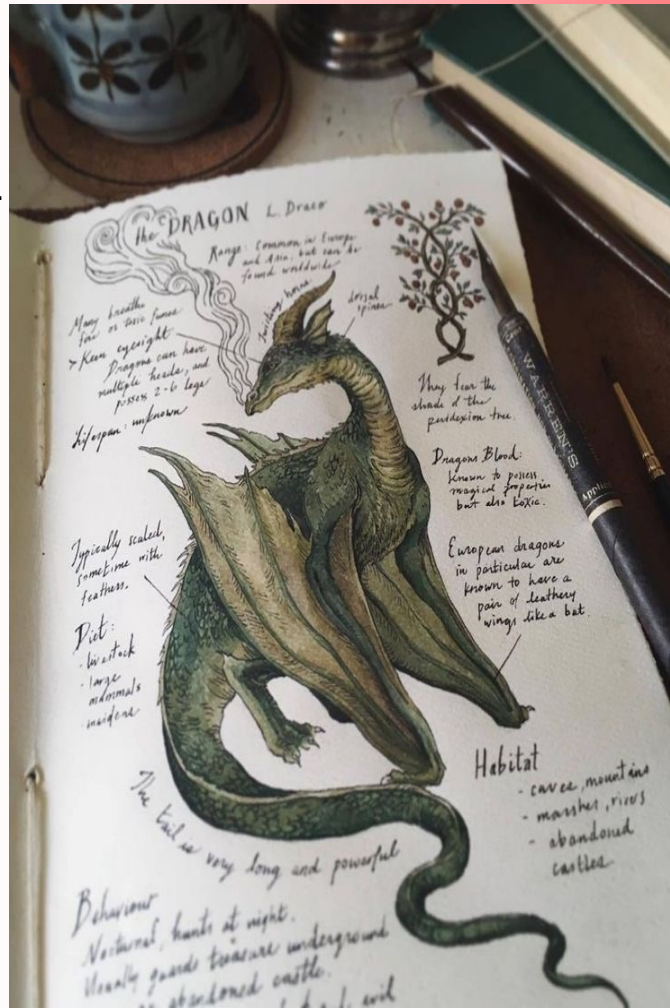 the DRAGON L. Draco
Range: Common in Europe
and Asia, but can be
found worldwide
Many breathe
fire or toxic fumes
> Keen eyesight
Dragons can have
multiple heads, and
possess 2-6 legs
Lifespan: unknown
twisting horns
dorsal
spines
They fear the
shade of the
peridexion tree.
Dragons Blood:
known to possess
magical properties
but also toxic.
European dragons
in particular are
known to have a
pair of leathery
wings like a bat.
Typically scaled,
sometime with
feathers.
Diet:
- livestock
- large
mammals
- maidens
Habitat
- caves, mountains
- marshes, rivers
- abandoned
castles
The tail is very long and powerful
Behaviour
Nocturnal, hunts at night.
Usually guards treasure underground
abandoned castle.
evil
WARREN'S